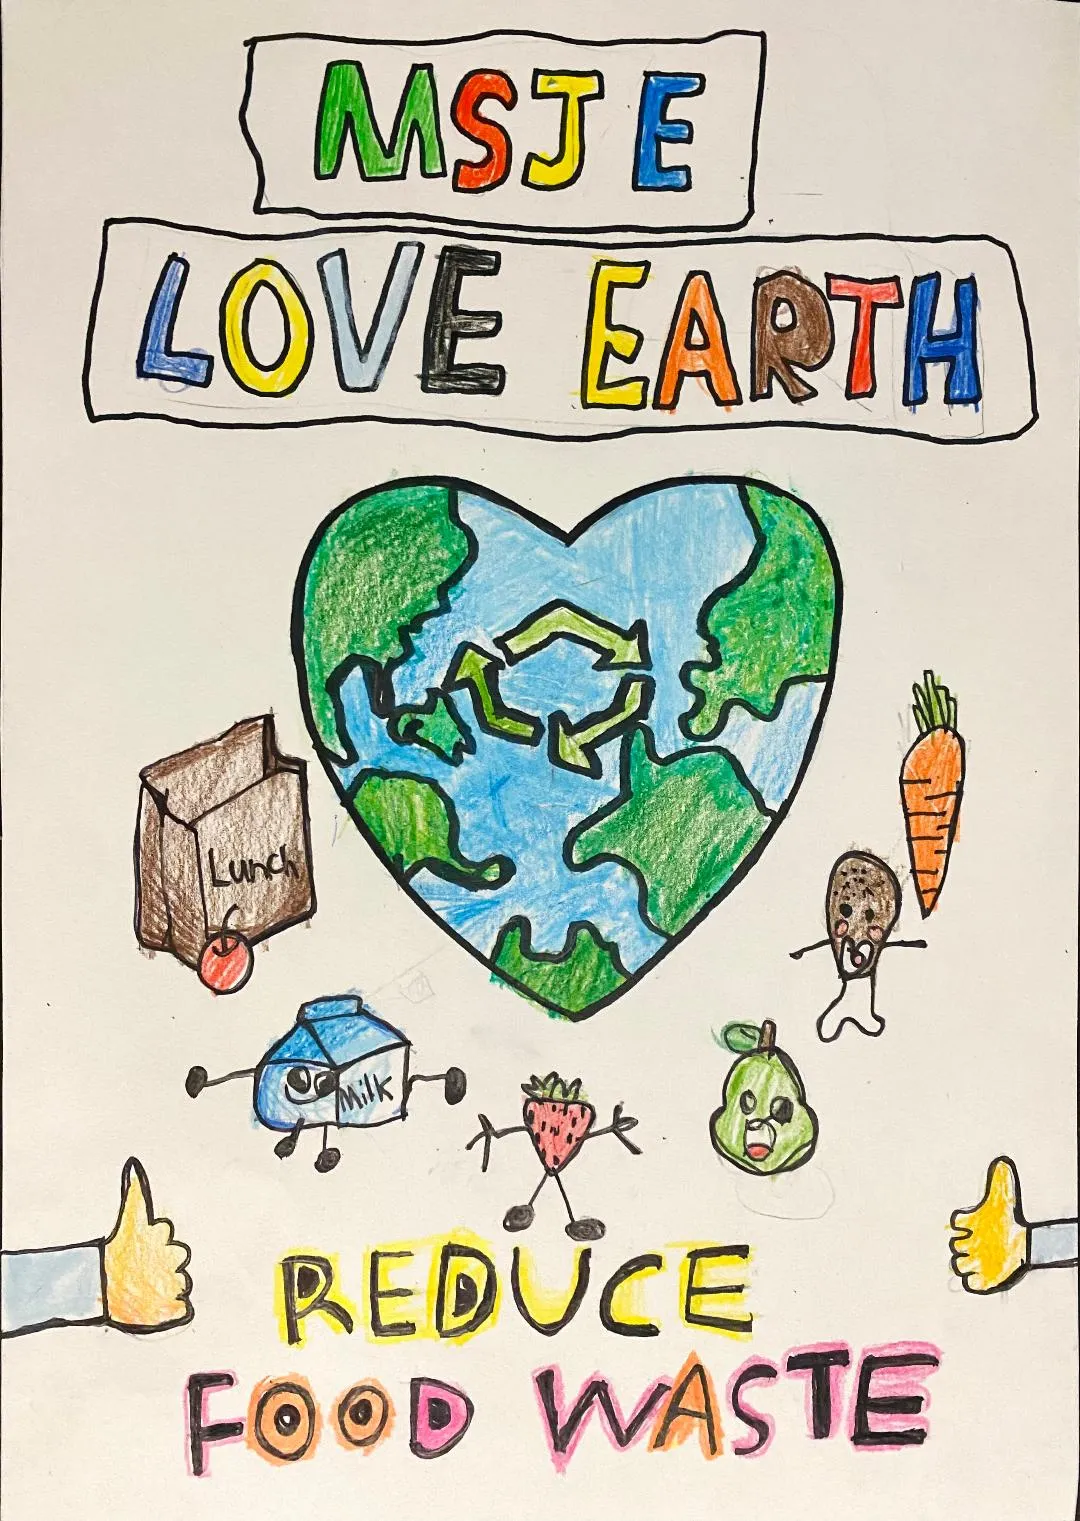 MSJ E
LOVE EARTH
Lunch
Milk
REDUCE
FOOD WASTE